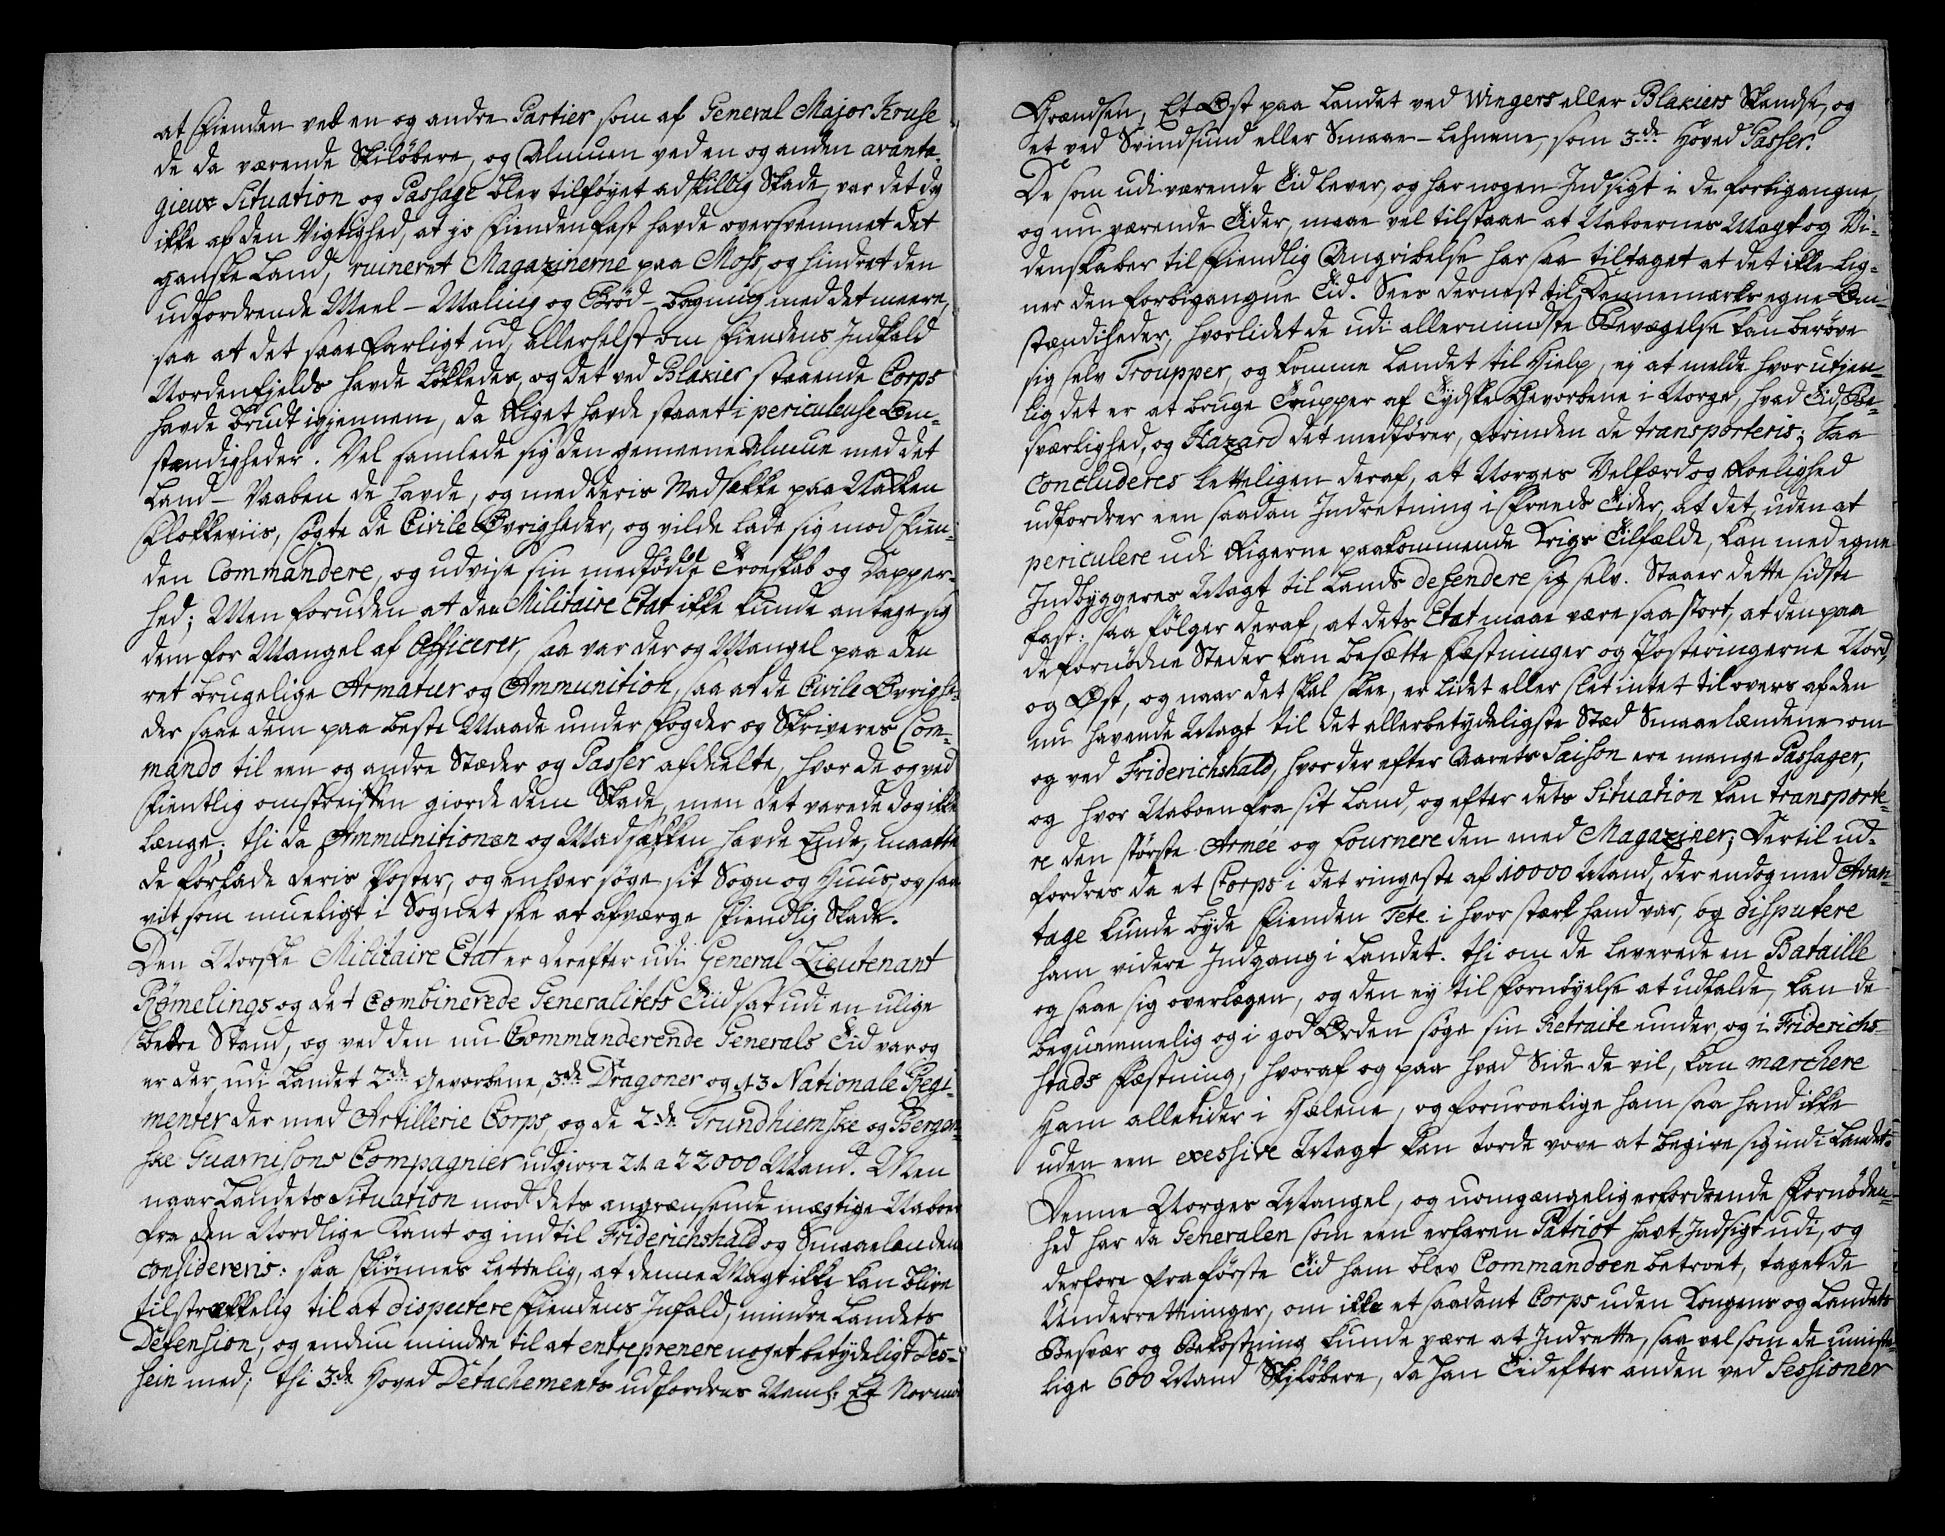 at Fienden ved en og andre Partier som af General Major Kruse
de da værende Skiløbere, og Almuen ved en og anden avanta-
gieux Situation og Passage blev tilføyet adskillig Skade, var det dog
ikke af den Vigtighed, at jo Fienden fast havde oversvemmet det
ganske Land, ruineret Magazinerne paa Moss, og hindret den
udfordrende Meel-Maling og Brød-bagning med det meere,
saa at det saae farligt ud, allerhelst om Fiendens Indfald
Nordenfields havde løkkedes, og det ved Blakier staaende Corps
havde brudt igiennem, da Riget havde staaet i periculeuse Om-
stændigheder. Vel samlede sig den gemeene Almue med det
Land-Vaaben de havde, og med deris Madsække paa Nakken
Flokkeviis, søgte de Civile Øvrigheder, og vilde lade sig mod Fien-
den Commandere, og udvise sin medfødde Troeskab og Dapper-
hed; Men foruden at den Militaire Etat ikke kunde antage sig
dem for Mangel af Officerer, saa var der og Mangel paa den
ret brugelige Armatur og Ammunition, saa at de Civile Øvrighe-
der saae dem paa beste Maade under Fogder og Skriveres Com-
mando til een og andre Stæder og Passer afdeelte, hvor de og ved
Fientlig omstreiffen giorde dem Skade, men det varede dog ikke
længe; thi da Ammunitionen og Madsækken havde Ende, maatte
de forlade deris Poster, og enhver søge sit Sogn og Huus, og saa
vit som mueligt i Sognet see at afværge Fiendlig Skade.
Den Norske Militaire Etat er derefter udi General Lieutenant
Rømelings og det Combinerede Generalitets Tiid sat udi en ulige
bedre Stand, og ved den nu Commanderende Generals Tid var og
er der, udi Landet 2de Gevorbene, 3de Dragoner og 13 Nationale Regi-
menter der med Artillerie Corps, og de 2de Trundhiemske og Bergen-
ske Guarnisons Compagnier udgiøre 21 a 22000 Mand. Men
naar Landets Situation mod dets angrænsende mægtige Naboer
fra den Nordlige Kant og indtil Friderichshald og Smaaelandene
considereris: saa skiønnes lettelig, at denne Magt ikke kan blive
tilstrækkelig til at disputere Fiendens Infald, mindre Landets
Defension, og endnu mindre til at entreprenere noget betydeligt Des-
sein med; thi 3de Hoved Detachements udfordres Neml: Et Norden
Grændsen, Et Øst paa Landet ved Wingers eller Blakiers Skandse, og
et ved Svindsund eller Smaae-Lehnene, som 3de Hoved Passer.
De som udi værende Tid lever, og har nogen Indsigt i de forbigangne
og nu værende Tider, maae vel tilstaae at Naboernes Magt og Vi-
denskaber til Fiendlig Angribelse har saa tiltaget at det ikke lig-
ner den forbigangne Tid. Sees dernest til Dannemarks egne Om-
stændiheder, hvor lidet de udi allermindste Bevægelse kan berøve
sig selv Troupper, og komme Landet til Hielp, ej at melde hvor utien-
lig det er at bruge Trupper af Tydske Gevorbene i Norge, hvad Tid, Be-
sværlighed, og Hazard det medfører, forinden de transporteris; Saa
concluderes letteligen deraf, at Norges Velfærd og Roelighed
udfordrer een saadan Indretning i Freeds Tider, at det, uden at
periculere udi Rigerne paakommende Krigs Tilfælde, kan med egne
Indbyggeres Magt til Lands defendere sig selv. Staaer dette sidste
fast: saa følger deraf, at dets Etat maae være saa stort, at den paa
de fornødne Steder kan besætte Fæstninger og Posteringerne Nord
og Øst, og naar det skal skee, er lidet eller slet intet til overs af den
nu havende Magt til det allerbetydeligste Stæd Smaaelændene om
og ved Friderichshald, hvor der efter Aarets Saison ere mange Passager,
og hvor Naboen fra sit Land, og efter dets Situation kan transporte-
re den største Armée og fournere den med Magaziner; Dertil ud-
fordres da et Corps i det ringeste af 10000 Mand, der endog med Avan-
tage kunde byde Fienden Tete i hvor stærk hand var, og disputere
ham videre Indgang i Landet. thi om de leverede en Bataille
og saae sig overlægen, og den ey til Fornøyelse at udfalde, kan de
bequemmelig og i god Orden søge sin Retraite under, og i Friderichs-
stads Fæstning, hvoraf og paa hvad Side de vil, kan marchere
Ham alletider i Hælene, og foruroelige ham saa hand ikke
uden een exessive Magt kan torde vove at begive sig ind i Landet.
Denne Norges Mangel, og uomgængelig erfordrende Fornøden-
hed har da Generalen som een erfaren Patriot havt Indsigt udi, og
derfore fra første Tid ham blev Commandoen betroet, taget de
Underretninger, om ikke et saadant Corps uden Kongens og Landets
Besvær og Bekostning kunde være at Indrette, saa vel som de umiste-
lige 600 Mand Skiløbere, da han Tid efter anden ved Sessioner